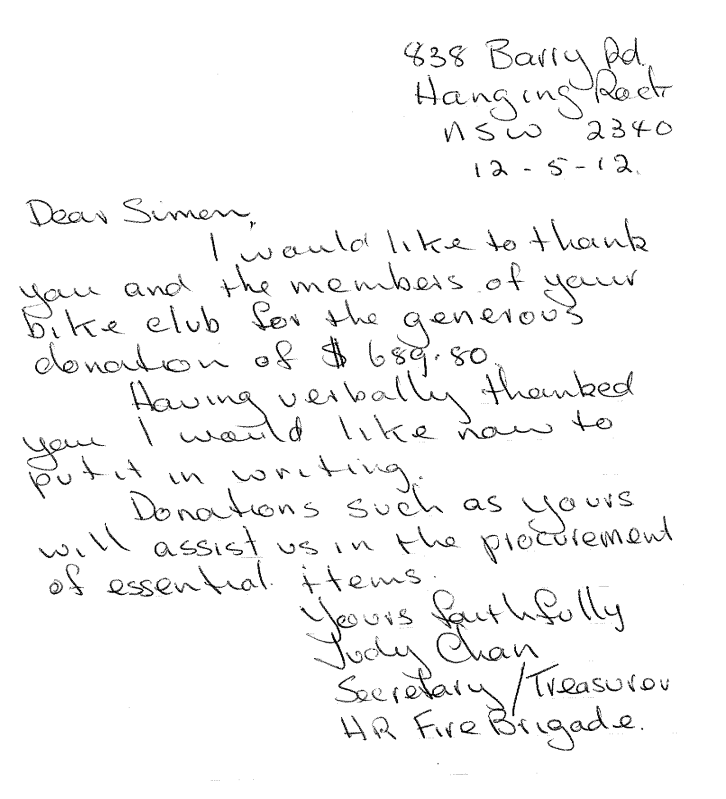 838 Barry Rd.
Hanging Rock
NSW 2340
12-5-12.
Dear Simon,
I would like to thank
you and the members of your
bike club for the generous
donation of $689.80.
Having verbally thanked
you I would like now to
put it in writing.
Donations such as yours
will assist us in the procurement
of essential items.
Yours faithfully
Judy Chan
Secretary/Treasurer
HR Fire Brigade.